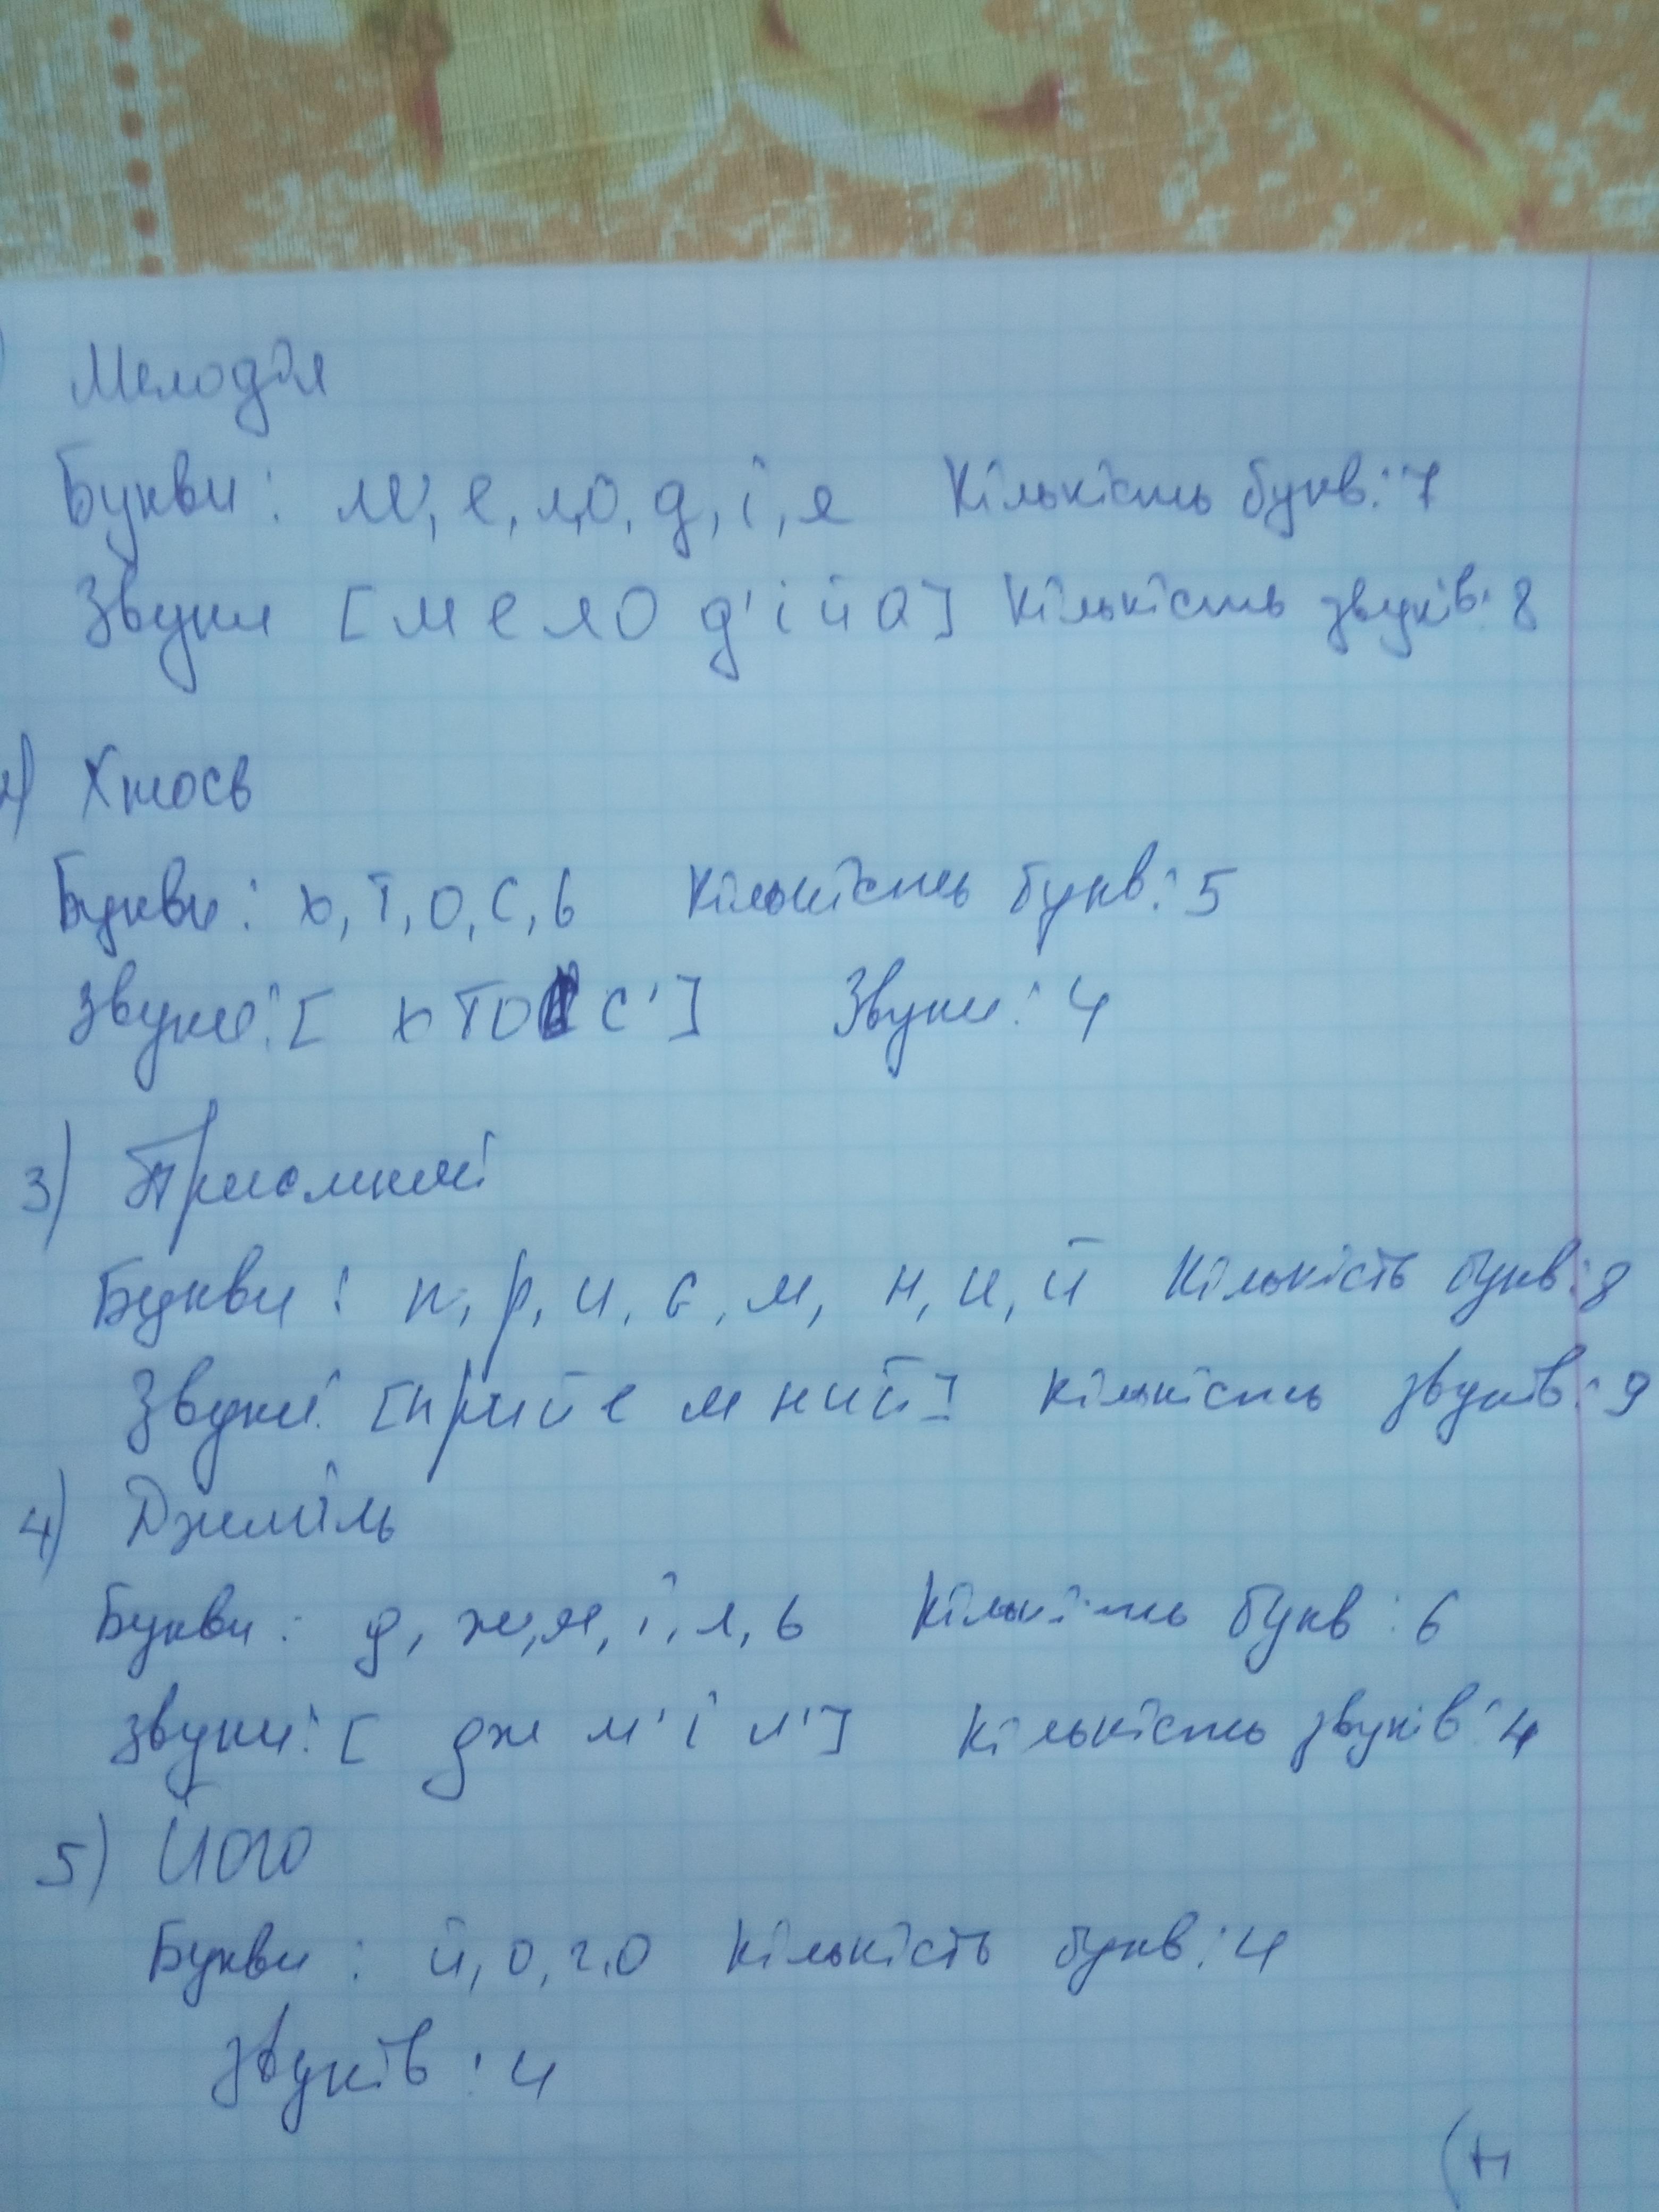 Мелодія
Букви: м, е, л, о, д, і, я Кількість букв: 7
Звуки [м е л о д' і й а] Кількість звуків: 8
2) Хтось
Букви: х, т, о, с, ь Кількість букв: 5
Звуки: [ х т о с' ] Звуки: 4
3) Приємний
Букви: п, р, и, є, м, н, и, й Кількість букв: 8
Звуки: [прийе м ний] Кількість звуків: 9
4) Джміль
Букви: д, ж, м, і, л, ь Кількість букв: 6
Звуки: [ дж м' і л' ] Кількість звуків: 4
5) Його
Букви: й, о, г, о Кількість букв: 4
Звуків: 4